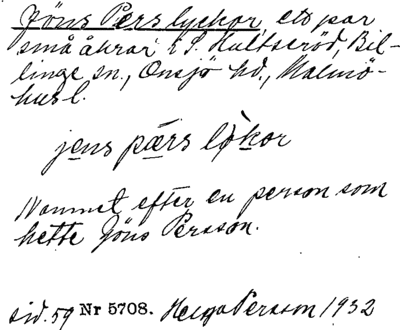 Jöns Perslyckor, ett par
små åkrar i S. Hultseröd, Bil-
linge sn., Onsjö hd., Malmö-
hus l.
jens pærs lökor
Namnet efter en person som
hette Jöns Persson.
sid. 59 Nr 5708. Helga Persson 1932